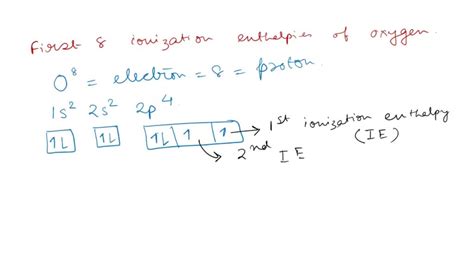 First 8 ionization enthalpies of oxygen.
O⁸ = electron = 8 = proton.
1s² 2s² 2p⁴
1L 1L 1L 1 1 → 1st ionization enthalpy
(IE)
2nd IE